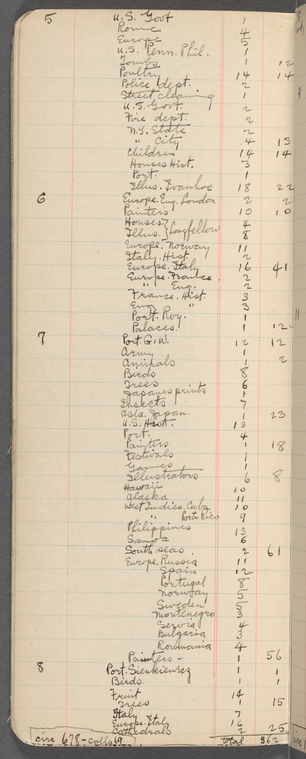 5 U.S. Govt 1
Rome 4
Europe 5
U.S. Penn. Phil. 1
Tombs 1 12
Poultry 14 14
Police dept. 2
Street cleaning 1
U.S. Govt. 2
Fire dept. 2
N.Y. State 2
" City 4 13
Children 14 14
Houses Hist. 3
Port. 1
Illus. Ivanhoe 18 22
6 Europe. Eng. London 2 2
Painters 10 10
Houses. } Longfellow 4
Illus. 8
Europe. Norway 11
Italy. Hist. 2
Europe. Italy 16 41
Europe. France. 2
" Eng. 2
France. Hist. 3
Eng. " 3
Port. Roy. 1
Palaces. 1 12
7 Port. G.W. 12 12
Army 1
Animals 1 2
Birds 8
Trees 6
Japanese prints 1
Insects 7
Asia. Japan. 1 23
U.S. Hist. 13
Port. 4
Painters 1 18
Festivals 1
Games 1
Illustrators 6 8
Hawaii 10
Alaska 11
West Indies. Cuba 10
" Porto Rico 9
Philippines 13
Samoa 6
South seas. 2 61
Europe. Russia 11
Spain 12
Portugal 8
Norway 5
Sweden 5
Montenegro 3
Servia 4
Bulgaria 3
Roumania 4
Painters - 1 56
8 Port. Sienkiewicz 1 1
Birds. 1 1
Fruit 14
Trees 1 15
Italy 7
Europe. Italy 16
Cathedrals 2 25
circ 678 - calls 69 Total 362